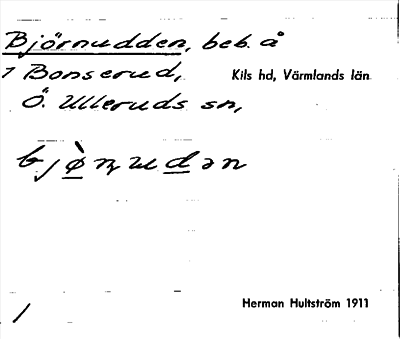 Björnudden, beb. å
1 Bonserud, Kils hd, Värmlands län
Ö. Ulleruds sn,
bjø̀ṇudən
Herman Hultström 1911
/